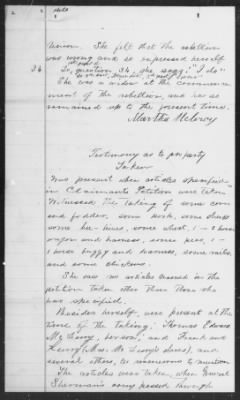 Union. She felt that the rebellion
was wrong and so expressed herself
36 To question 36, she says: "I do"
She was a widow at the commence-
ment of the rebellion, and has so
remained up to the present time.
Martha McLeroy
Testimony as to property
Taken
Was present when articles specified
in Claimants Petition were taken
Witnessed the taking of some corn
and fodder, some pork, some sheep
some bee-hives, some wheat, 1-1 horse
wagon and harness, some peas, 1-
1 horse buggy and harness, some nails,
and some chickens.
She saw no articles named in the
petition taken other than those she
has specified.
Besides herself, were present at the
time of the taking, Thomas Edward
McLeroy, her son, and Frank and
Henry
several others, too numerous to mention
The articles were taken, when General
Sherman's army passed through